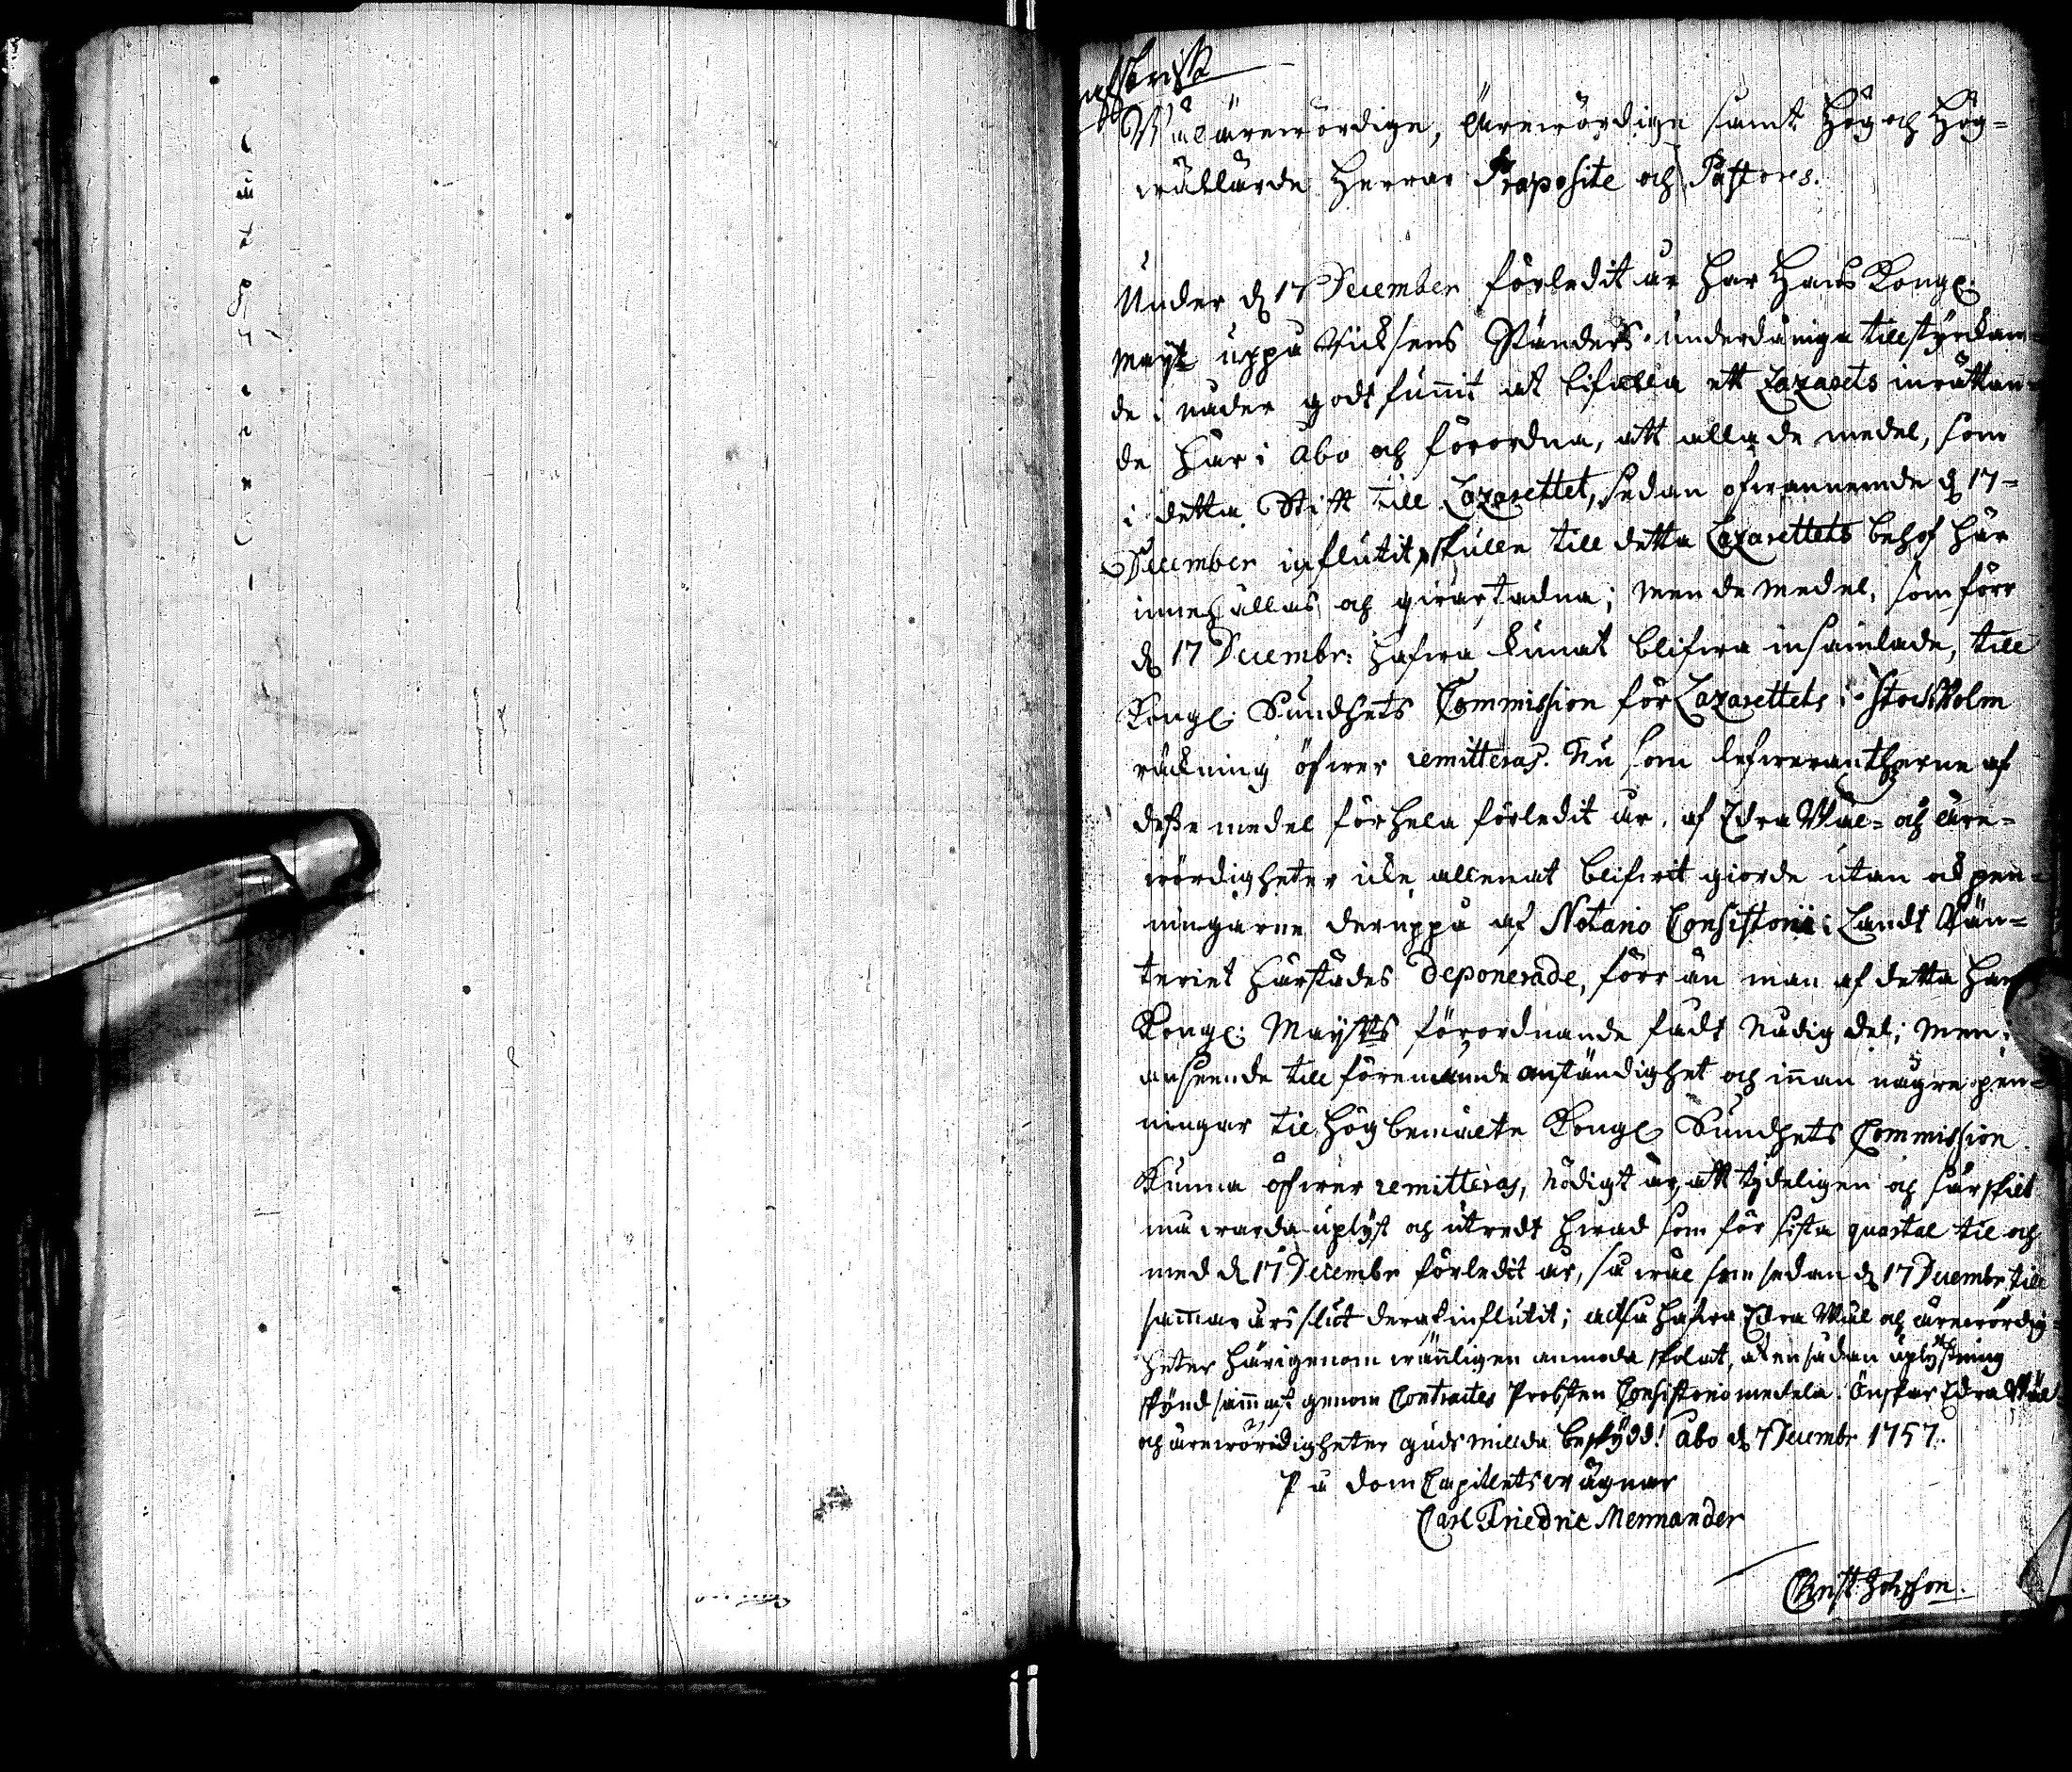 afskrifft
Wäl ärewördige, ärewördige samt Hög och Hög-
wällärde Herrar Præposite och Pastores.
Under d 17 December förledit år har Hans Kongl:
Mayt uppå Riksens Ständers underdåniga tillstyrckan-
de i nåder godt funnit at bifalla ett Lazarets inrättan-
de här i Åbo och förordna, att alla de medel, som
i detta Stift till Lazarettet, sedan ofwannemde d 17-
December influtit, skulle till detta Lazarettets behof här
innehållas och giwas; men de medel, som förr
d 17 Decembr: hafwa kunnat blifwa insamlade, till
Kongl: Sundhets Commission för Lazarettets i Stockholm
räckning öfwer remitteras. Nu som lefwerantzerne af
desse medel för hela förledit år, af Edra Wäl- och äre-
wördigheter icke allenat blifwit giorde utan ock pen-
ningarne deruppå af Notario Consistorii i Landt Rän-
teriet härstädes deponerade, förr än man af detta Hans
Kongl: Mayts förordnande fådt nådig del; men i
anseende till förenämde omständighet och innan någre pen-
ningar til högbemälte Kongl Sundhets Commission
kunna öfwer remitteras, nödigt är, att tydeligen och särskilt
må warda uplyst och utredt hwad som för sista quartal til och
med d 17 Decembr förledit år, så wäl som sedan d 17 Decembr till
samma års slut deraf influtit; altså hafwa Edra Wäl och ärewördig-
heter härigenom wänligen anmoda skolat, at en sådan uplysning
skyndsammast genom Contracts Probsten Consistorio meddela. Önskar Edra Wäl
och ärewördigheter Guds millda beskydd! Åbo d 7 Decembr 1757.
På Dom Capitlets wägnar
Carl Friedric Mennander
Christ: Johnson.